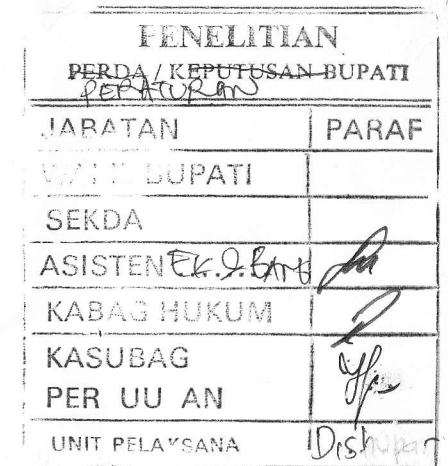 PENELITIAN
PERDA / KEPUTUSAN BUPATI
PERATURAN
JABATAN PARAF
WAKIL BUPATI
SEKDA
ASISTEN EK. & BANG
KABAG HUKUM
KASUBAG
PER UU AN
UNIT PELAKSANA Dishubpar